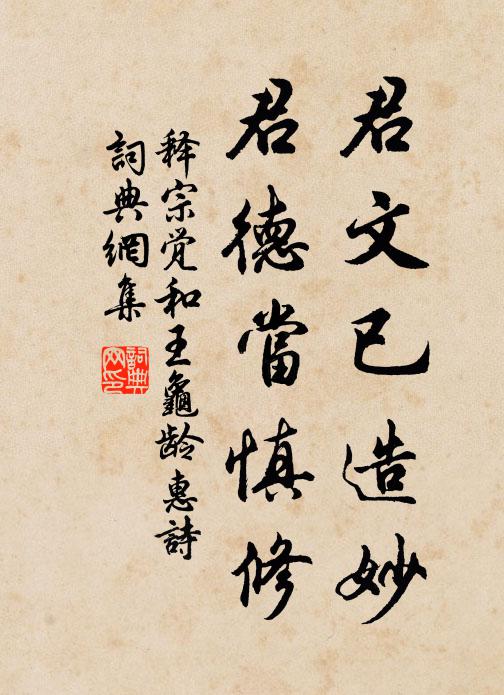 君文已造妙
君德當慎修
释宗觉和王龜龄惠詩
詞典網集
詞典網印